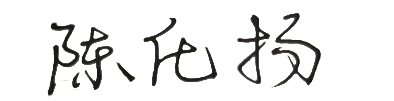 陈化扬